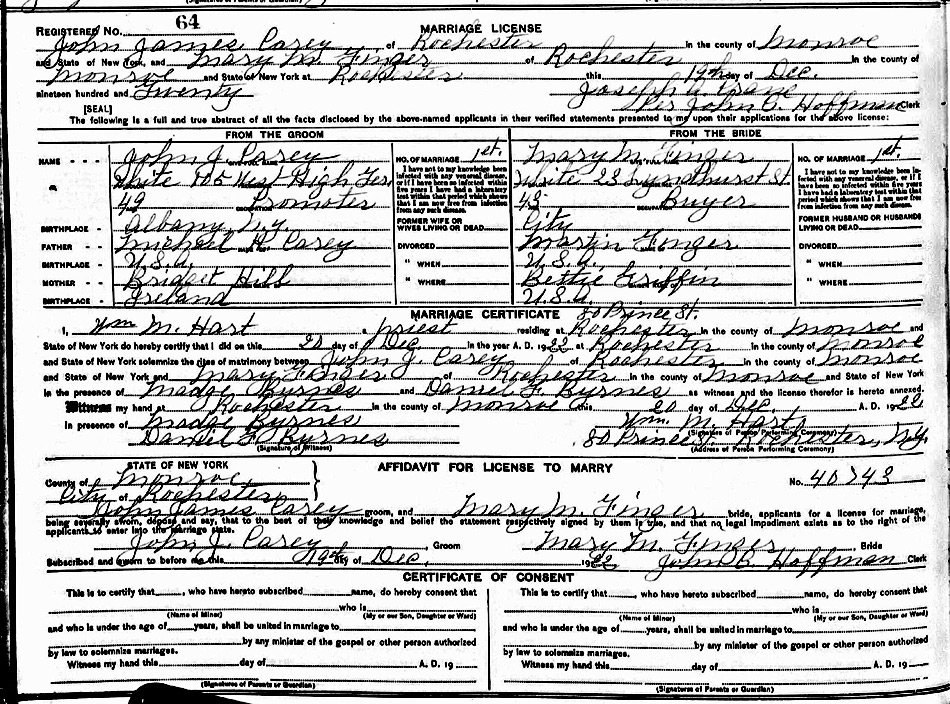 (Signatures of Parents or Guardian)
64
REGISTERED No. MARRIAGE LICENSE
John James Carey of Rochester in the county of Monroe
and State of New York, and Mary M. Finger of Rochester in the county of
Monroe and State of New York at Rochester this 19th day of Dec.
nineteen hundred and Twenty Joseph C. Crane
[SEAL] Per John B. Hoffman Clerk
The following is a full and true abstract of all the facts disclosed by the above-named applicants in their verified statements presented to me upon their applications for the above license:
FROM THE GROOM FROM THE BRIDE
NAME John J. Carey NO. OF MARRIAGE 1st. Mary M. Finger NO. OF MARRIAGE 1st.
White 105 West High Ter. White 23 Lyndhurst St.
I have not to my knowledge been infected with any venereal disease, or if I have been so infected within five years I have had a laboratory test within that period which shows that I am now free from infection from any such disease.
I have not to my knowledge been infected with any venereal disease, or if I have been so infected within five years I have had a laboratory test within that period which shows that I am now free from infection from any such disease.
49 OCCUPATION Promoter 43 OCCUPATION Buyer
BIRTHPLACE Albany N.Y. FORMER WIFE OR WIVES LIVING OR DEAD City FORMER HUSBAND OR HUSBANDS LIVING OR DEAD
FATHER Michael H. Carey DIVORCED Martin Finger DIVORCED
BIRTHPLACE U.S.A. " WHEN U.S.A. " WHEN
MOTHER Bridget Hill " WHERE Bettie Griffin " WHERE
BIRTHPLACE Ireland U.S.A.
MARRIAGE CERTIFICATE 80 Prince St.
I, Wm M. Hart a priest residing at Rochester in the county of Monroe and
State of New York do hereby certify that I did on this 20 day of Dec. in the year A. D. 1922 at Rochester in the county of Monroe
and State of New York solemnize the rites of matrimony between John J. Carey of Rochester in the county of Monroe
and State of New York and Mary Finger of Rochester in the county of Monroe and State of New York
in the presence of Madge Byrnes and Daniel F. Byrnes as witness and the license therefor is hereto annexed.
Witness my hand at Rochester in the county of Monroe this 20 day of Dec. A. D. 1922
In presence of Madge Byrnes Wm. M. Hart
(Signature of Person Performing Ceremony)
Daniel F. Byrnes 80 Prince St. Rochester, N.Y.
(Signature of Witness) (Address of Person Performing Ceremony)
STATE OF NEW YORK AFFIDAVIT FOR LICENSE TO MARRY No. 40743
County of Monroe
City of Rochester
John James Carey groom, and Mary M. Finger bride, applicants for a license for marriage,
being severally sworn, depose and say, that to the best of their knowledge and belief the statement respectively signed by them is true, and that no legal impediment exists as to the right of the
applicants to enter into the marriage state.
John J. Carey, Groom Mary M. Finger, Bride
Subscribed and sworn to before me this 19th day of Dec. 1922 John B. Hoffman Clerk
CERTIFICATE OF CONSENT
This is to certify that , who have hereto subscribed name, do hereby consent that This is to certify that , who have hereto subscribed name, do hereby consent that
who is who is
(Name of Minor) (My or our Son, Daughter or Ward) (Name of Minor) (My or our Son, Daughter or Ward)
and who is under the age of years, shall be united in marriage to and who is under the age of years, shall be united in marriage to
by any minister of the gospel or other person authorized by any minister of the gospel or other person authorized
by law to solemnize marriages. by law to solemnize marriages.
Witness my hand this day of A. D. 19 Witness my hand this day of A. D. 19
(Signatures of Parents or Guardian) (Signatures of Parents or Guardian)